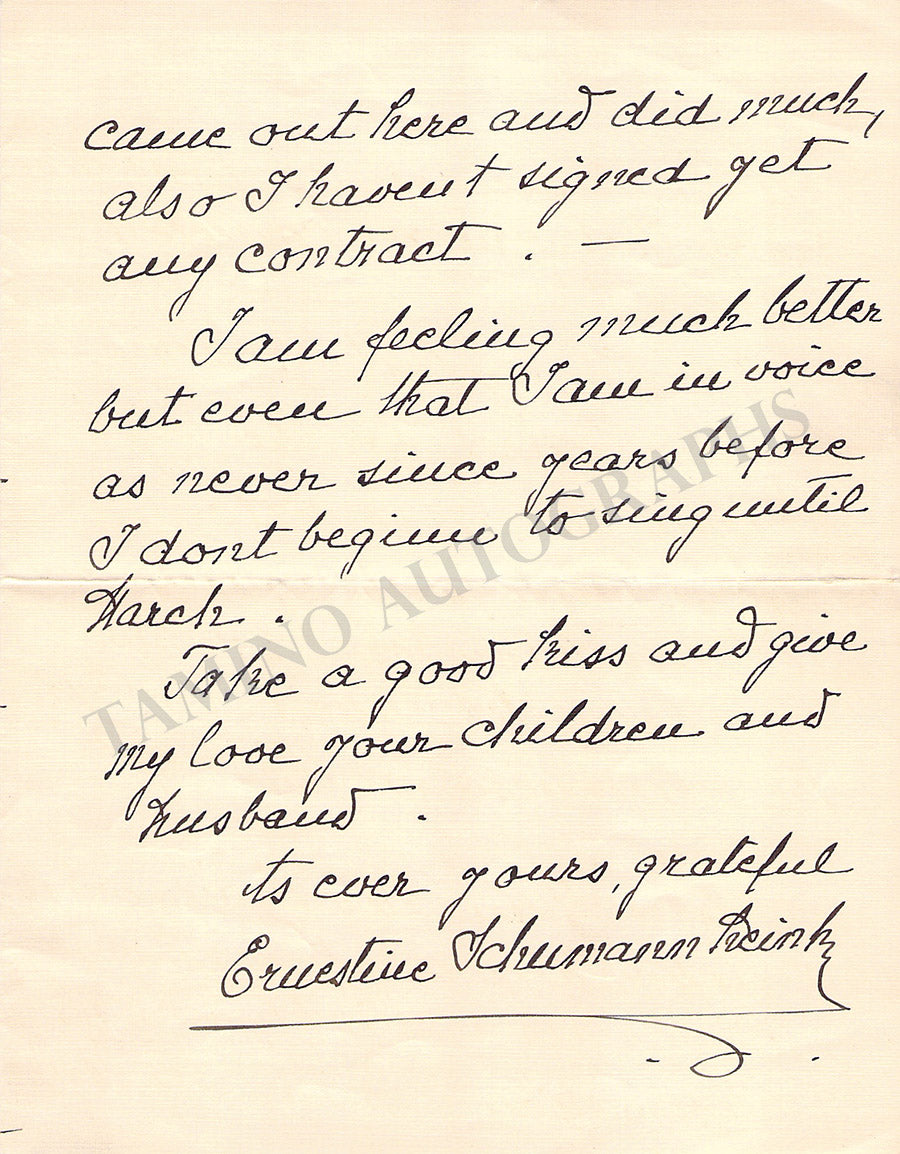 came out here and did much,
also I havent signed yet
any contract . —
I am feeling much better
but even that I am in voice
as never since years before
I dont beginn to sing until
March .
Take a good kiss and give
my love your children and
husband .
ts ever yours, grateful
Ernestine Schumann Heink
TAMINO AUTOGRAPHS